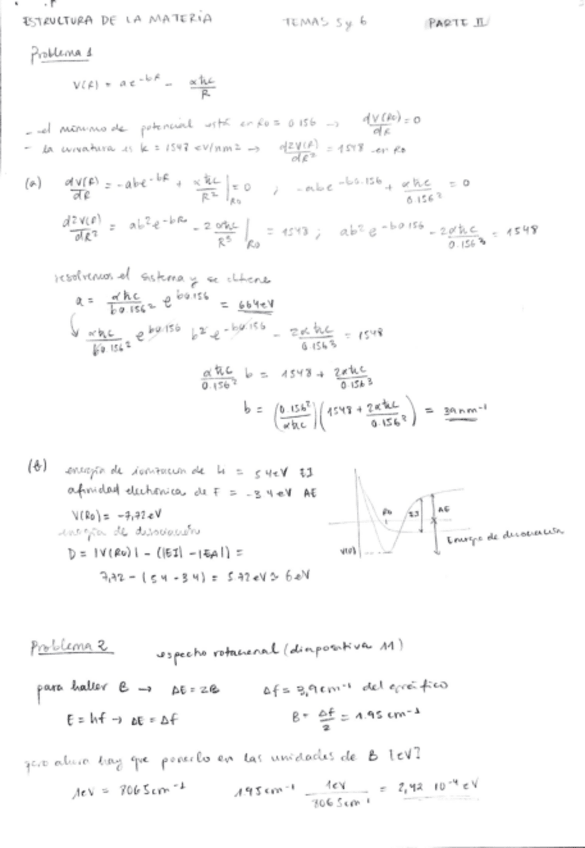 ESTRUCTURA DE LA MATERIA TEMAS 5 y 6 PARTE II
Problema 1
V(R) = a e^-bR - αħc/R
- el mínimo de potencial está en R0 = 0.156 → dV(R0)/dR = 0
- la curvatura es k = 1548 eV/nm2 → d2V(R)/dR2 = 1548 en R0
(a) dV(R)/dR = -abe^-bR + αħc/R^2 |R0 = 0 ; -abe^-b0.156 + αħc/0.156^2 = 0
d2V(R)/dR^2 = ab^2 e^-bR0 - 2αħc/R^3 |R0 = 1548 ; ab^2 e^-b0.156 - 2αħc/0.156^3 = 1548
resolvemos el sistema y se obtiene
a = αħc/b0.156^2 e^b0.156 = 664eV
αħc/b0.156^2 e^b0.156 b^2 e^-b0.156 - 2αħc/0.156^3 = 1548
αħc/0.156^2 b = 1548 + 2αħc/0.156^3
b = (0.156^2/αħc)(1548 + 2αħc/0.156^2) = 39nm^-1
(b) energía de ionización de = 5.4eV EI
afinidad electrónica de F = -3.4eV AE
V(R0) = -7,72eV
energía de disociación
D = |V(R0)| - (|EI| - |EA|) =
7,72 - (5.4 - 3.4) = 5.72eV ≃ 6eV
R0 EI AE
V(R0) Energía de disociación
Problema 2 espectro rotacional (diapositiva 11)
para hallar B → ΔE = 2B Δf = 3,9cm^-1 del gráfico
E = hf → ΔE = Δf B = Δf/2 = 1.95cm^-1
pero ahora hay que ponerlo en las unidades de B [eV]
1eV = 8065cm^-1 1.95cm^-1 1eV/8065cm^-1 = 2,42 10^-4 eV